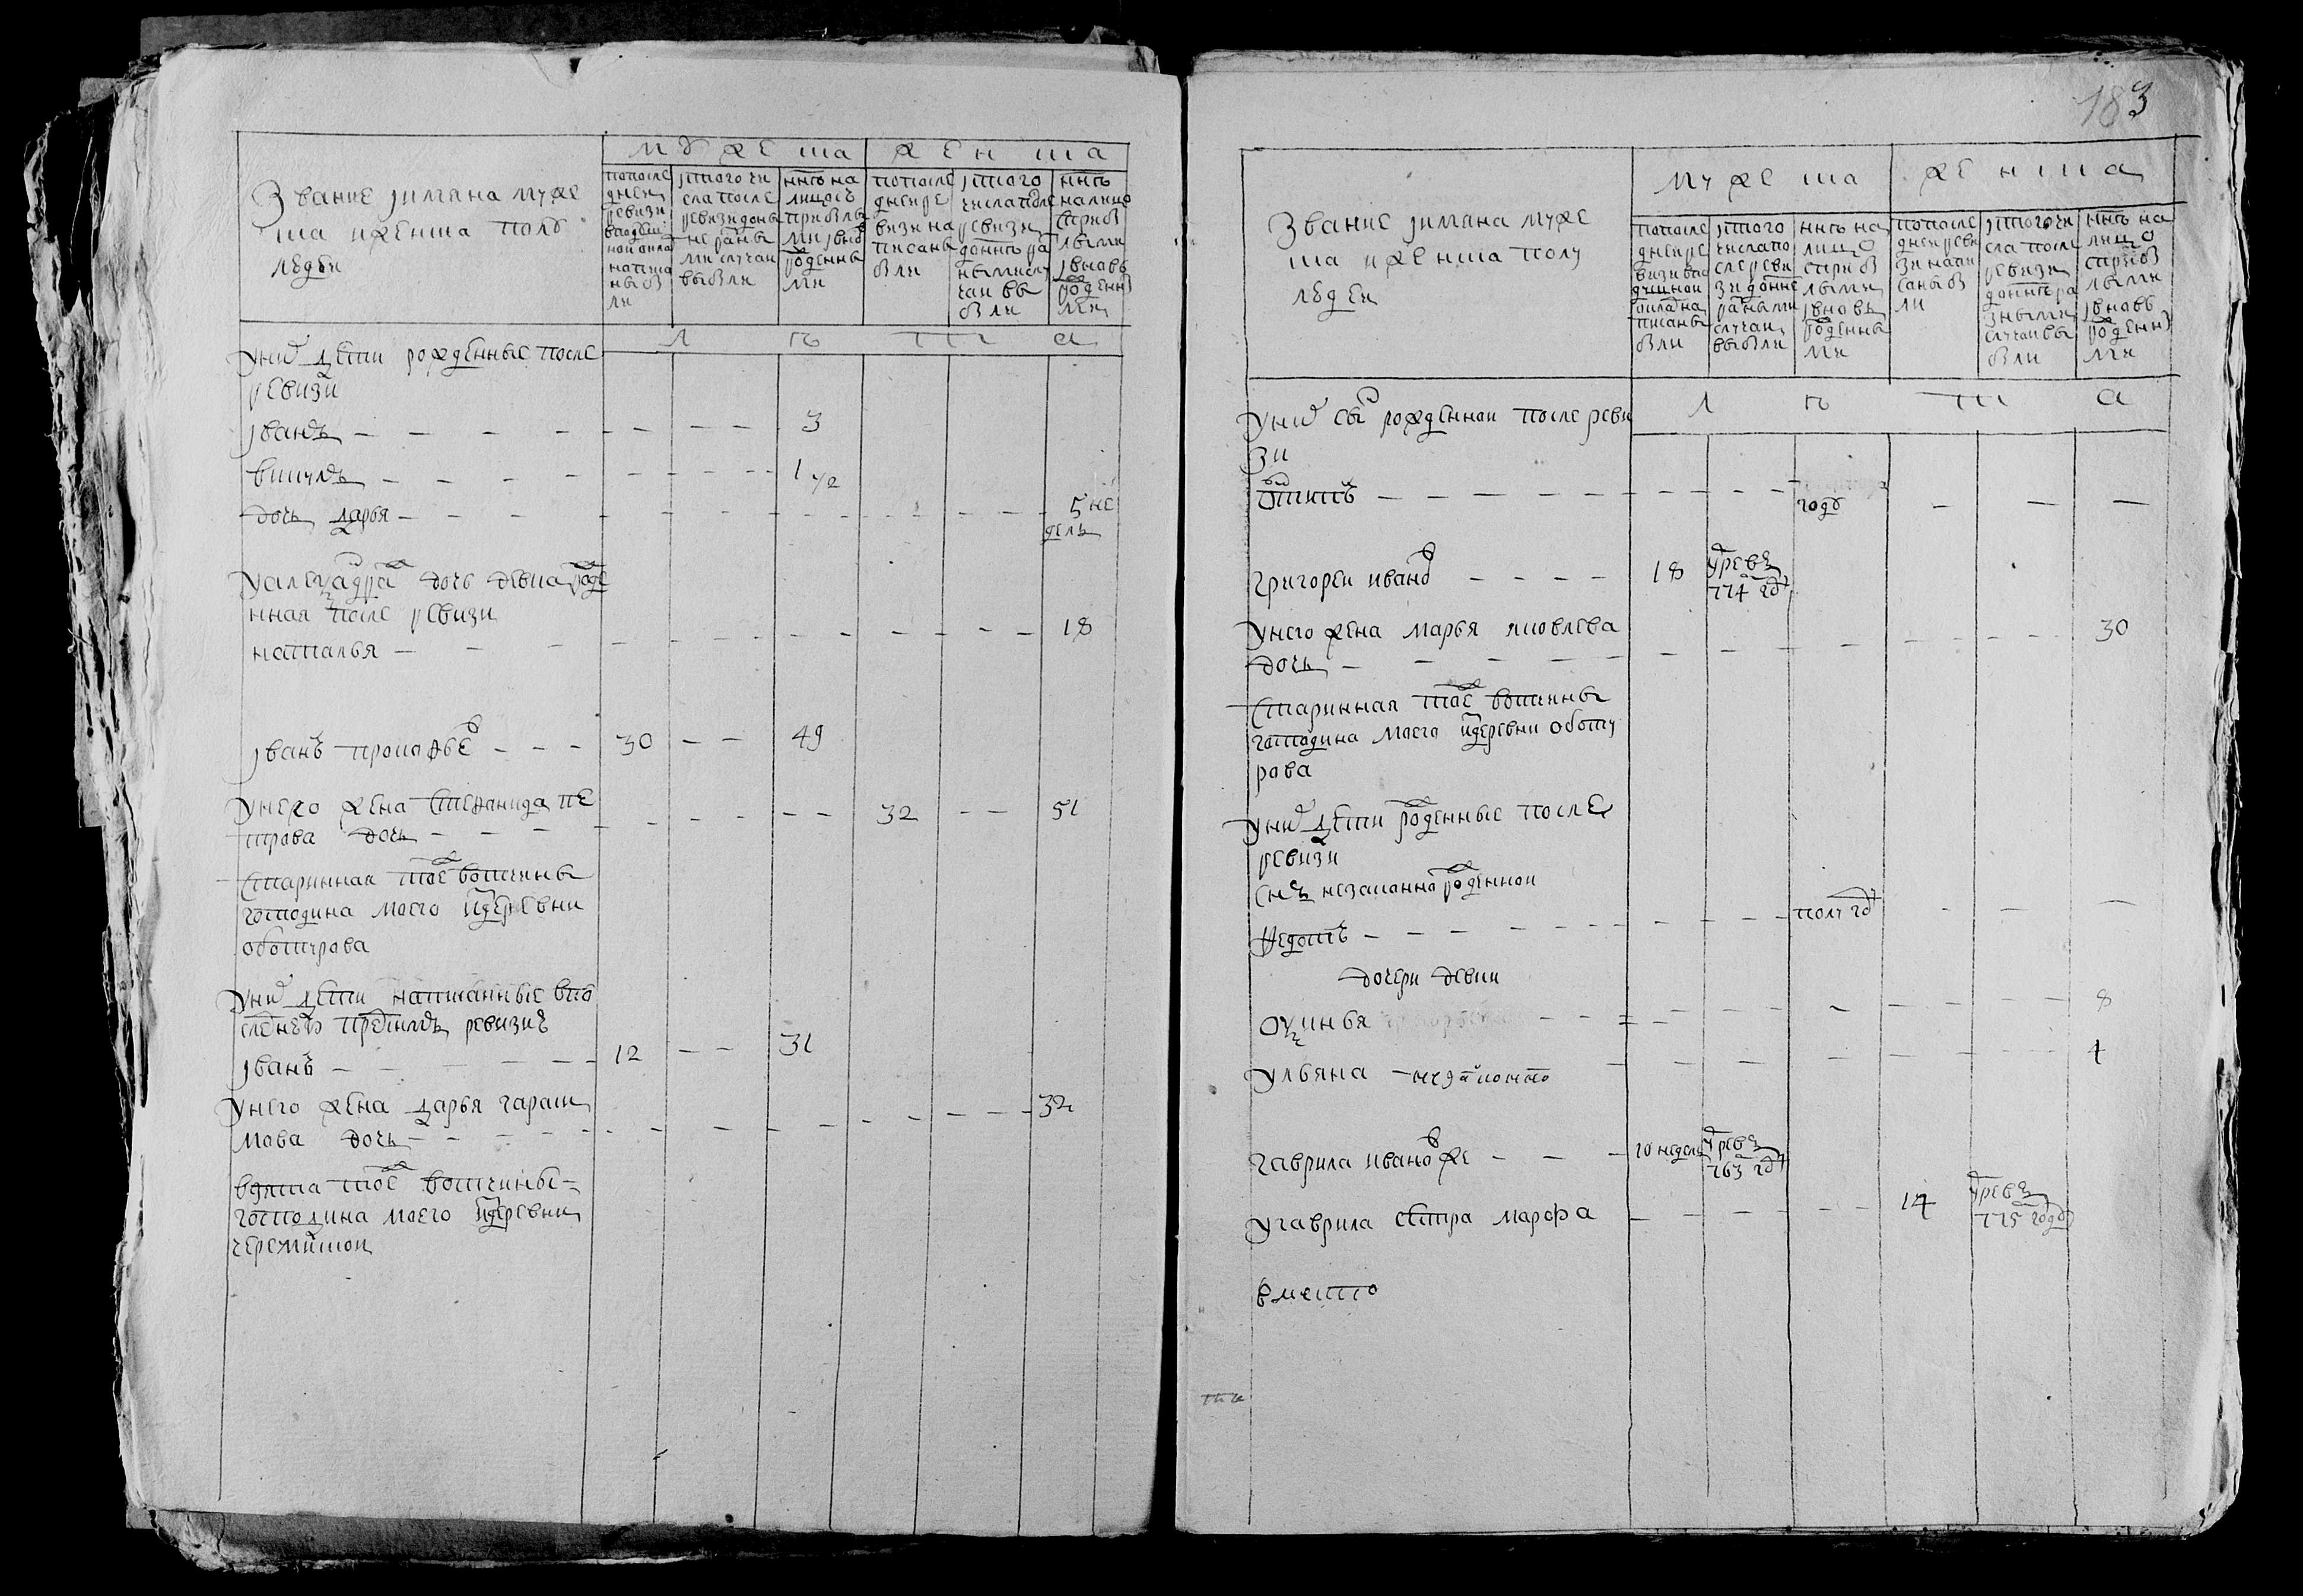 Звание імяна муже
ска и женска полу
людеи
мужеска
женска
попосле
днеи
ревизи
вподуш
нои окла
написа
ны бы
ли
ис того чи
сла после
ревизи до ны
не разны
ми случаи
выбыли
ннѣ на
лицо съ
прибылы
ми і вно
рожденны
ми
попосле
днеи ре
визи на
писаны
были
ис того
числа после
ревизи
до ннѣ ра
ными слу
чаи вы
были
ннѣ
на лицо
с прибы
лыми
і вновь
рожденны
ми
л ѣ т а
у них дети рожденные после
ревизи
іванъ 3
викулъ 1 1/2
дочь дарья 5 не
дель
у александра дочь девка рожде
нная после ревизи
наталья 18
іванъ прокофьев 30 49
у него жена степанида пе
трова дочь 32 51
старинная тоє вотчины
господина моего деревни
оботурова
у них дети написанные в по
следнеи пред симъ ревизиі
іванъ 12 31
у него жена дарья гараси
мова дочь 32
взята тоє вотчины
господина моего деревни
черемискои
183
Звание імяна муже
ска и женска полу
людеи
мужеска
женска
попосле
днеи ре
визи в по
душнои
окладъ на
писаны
были
ис того
числа по
сле реви
зи до нне
разными
случаи
выбыли
ннѣ на
лицо
с прибы
лыми
і вновь
рожденны
ми
попосле
днеи реви
зи напи
саны бы
ли
ис того чи
сла после
ревизи
до ннѣ ра
зными
случаи вы
были
ннѣ на
лицо
с прибы
лыми
і вновь
рожденны
ми
л ѣ т а
у них сын рожденнои после реви
зи
годъ
григореи иванов 18 умре въ
774 году
у него жена марья яковлева
дочь 30
старинная тоє вотчины
господина моего деревни оботу
рова
у них дети рожденные после
ревизи
сынъ незаконно рожденнои
Федотъ полугоду
дочери девки
оксинья 8
ульяна 4
гаврила иванов же 10 недель умре въ
763 году
у гаврила сестра марфа 14 умре въ
775 году
вместо